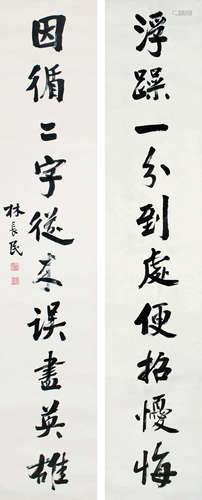 浮躁一分到處便招憂悔
因循二字從來誤盡英雄
林長民